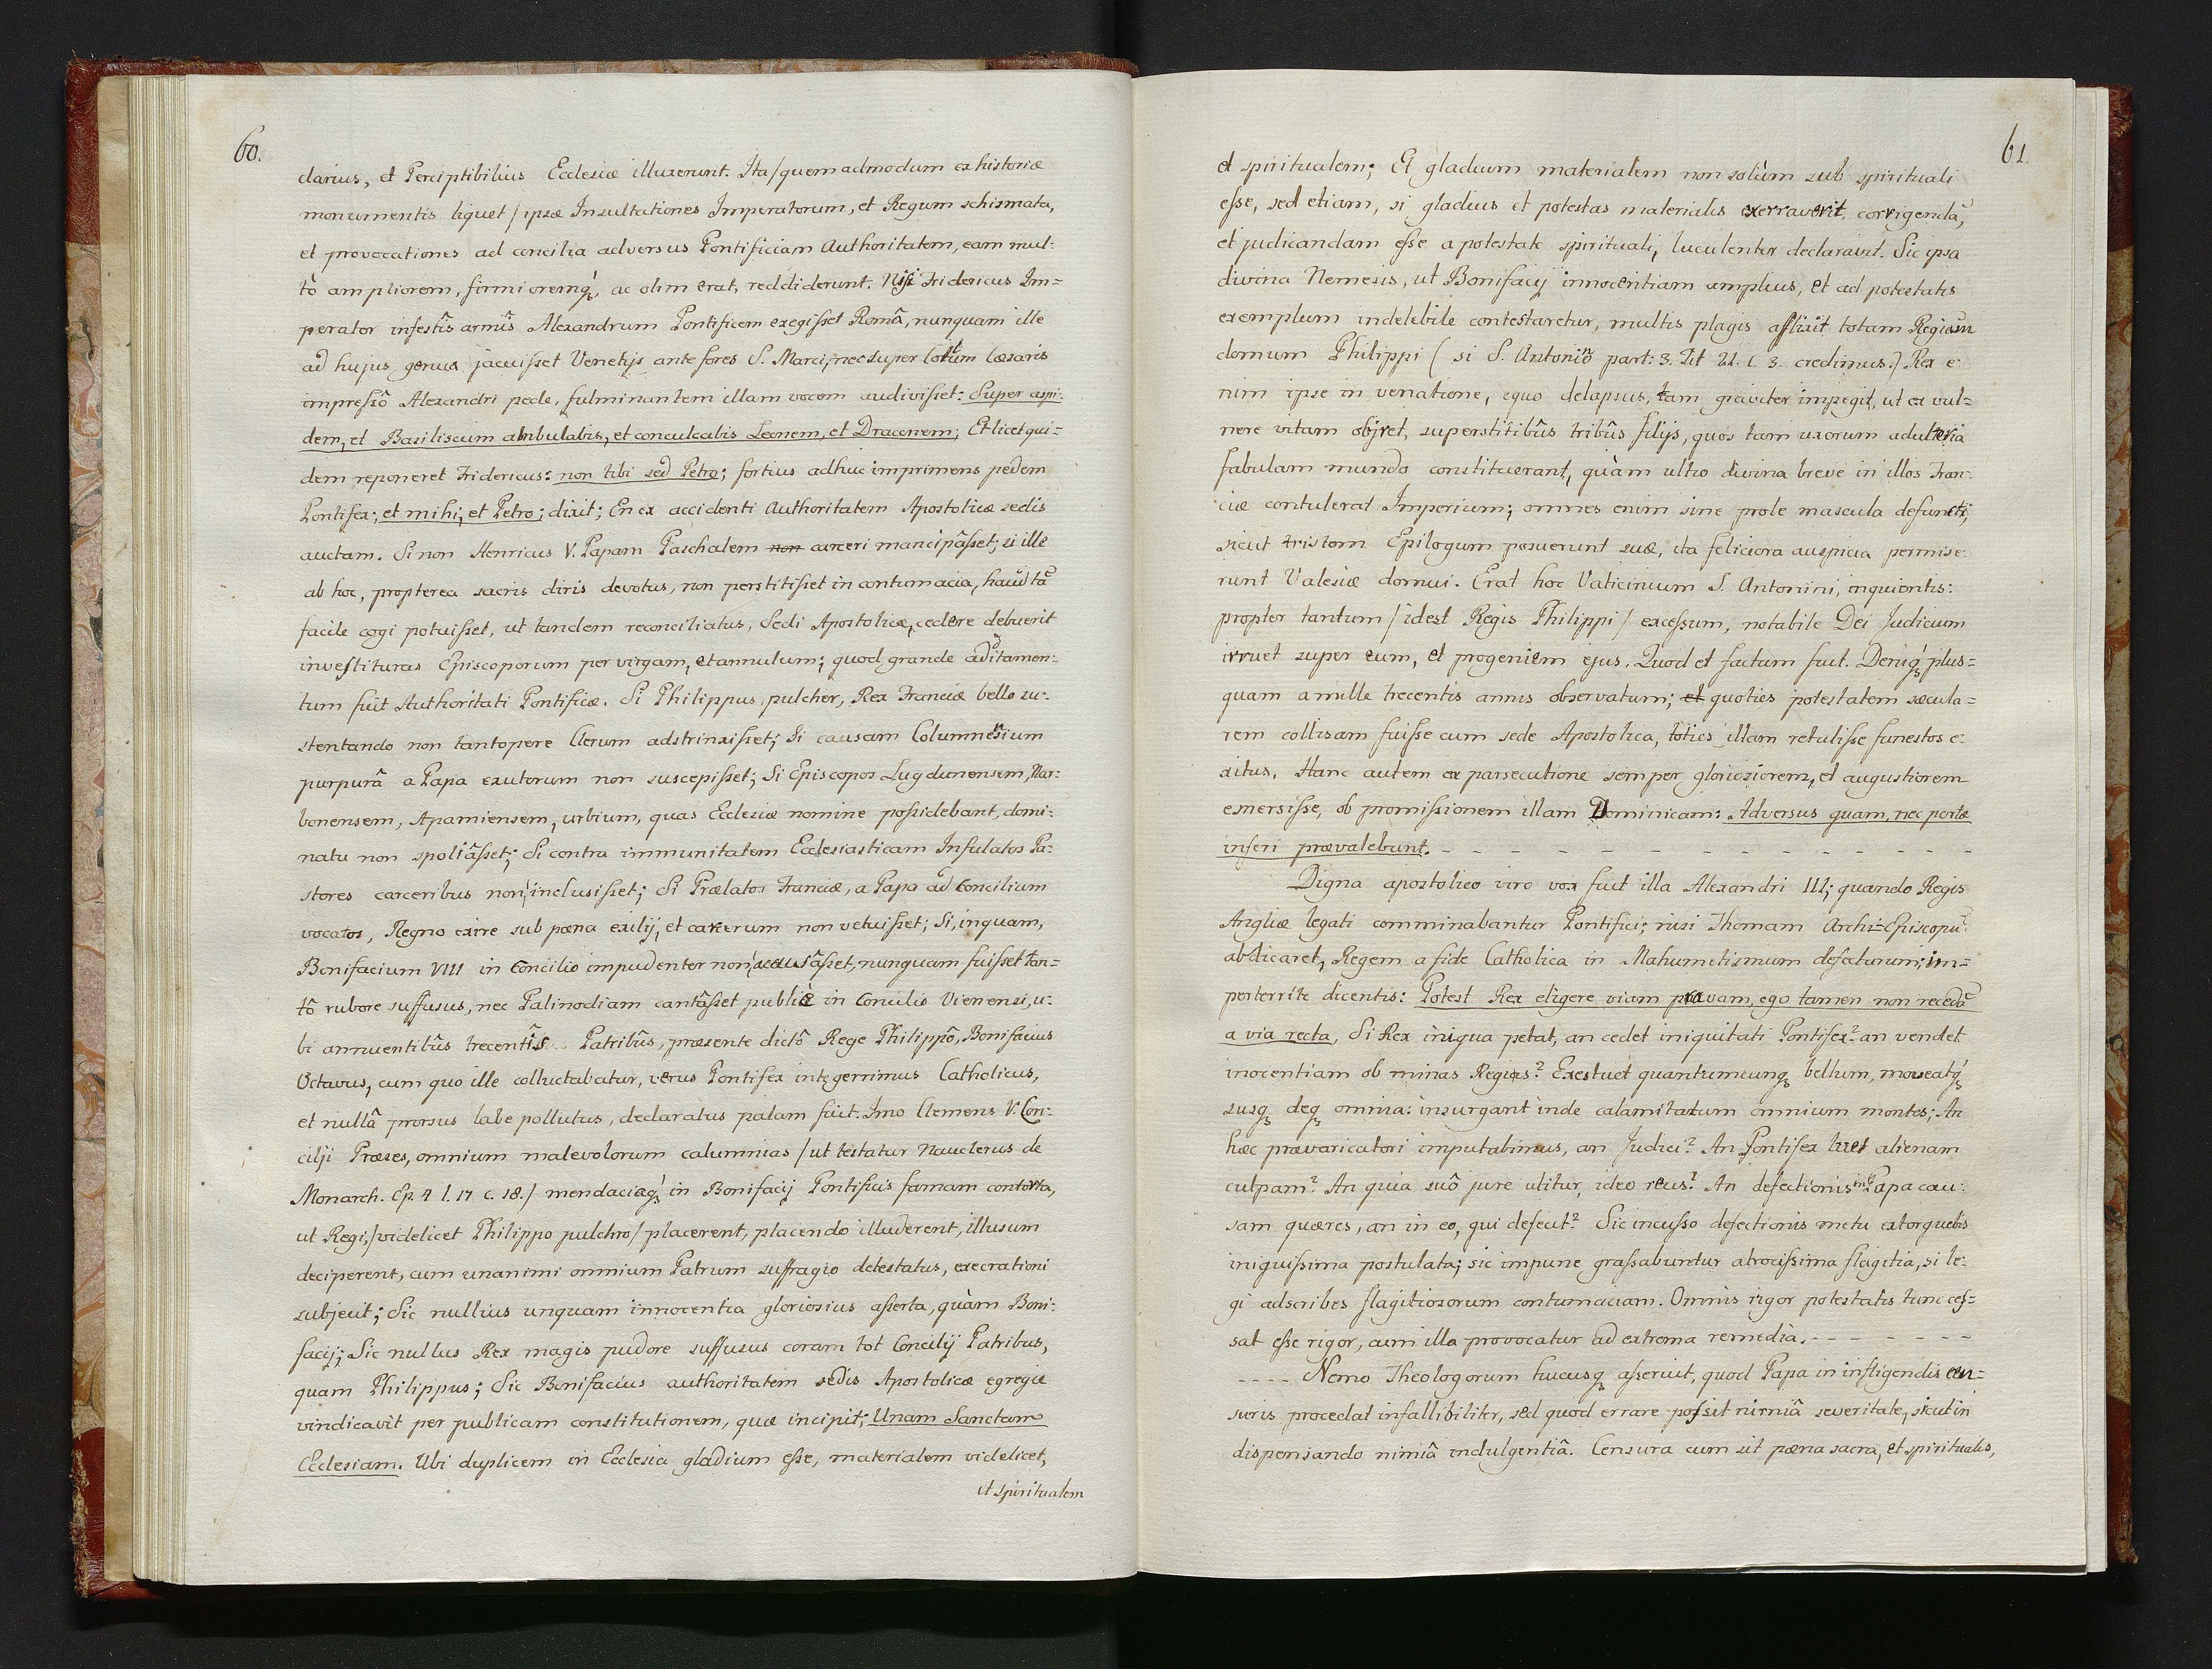 60.
clarius, et Perciptibilius Ecclesiæ illuxerunt. Ita /quemadmodum ex historiæ
monumentis liquet / ipsæ Insultationes Imperatorum, et Regum schismata,
et provocationes ad concilia adversus Pontificiam Authoritatem, eam mul-
tò ampliorem, firmioremq́, ac olim erat, reddiderunt. Nisi Fridericus Im=
perator infestis armis Alexandrum Pontificem exegisset Româ, nunquam ille
ad hujus genua jacuisset Venetijs ante fores S. Marci, nec super Cæsaris
impressô Alexandri pede, fulminantem illam vocem audivisset: Super aspi-
dem, et Basiliscum ambulabis, et conculcabis Leonem, et Draconem; Et licet qui=
dem reponeret Fridericus: non tibi sed Petro; fortius adhuc imprimens pedem
Pontifex; et mihi, et Petro; dixit; En ex accidenti Authoritatem Apostolicæ sedis
auctam. Si non Henricus V. Papam Paschalem non carceri mancipâsset; si ille
ab hoc, propterea sacris diris devotus, non perstitisset in contumacia, haud tã
facile cogi potuisset, ut tandem reconciliatus, Sedi Apostolicæ, cedere debuerit
investituras Episcoporum per virgam, et annulum; quod grande additamen-
tum fuit Authoritati Pontificæ. Si Philippus, pulcher, Rex Franciæ bello su-
stentando non tantopere Clerum adstrinxisset; Si causam Columnensium
purpurâ a Papa exutorum non suscepisset; Si Episcopos Lugdunensem, Nar-
bonensem, Apamiensem, urbium, quas Ecclesiæ nomine possidebant, domi-
natu non spoliâsset; Si contra immunitatem Ecclesiasticam Infulatos Pa-
stores carceribus non inclusisset; Si Prælatos Franciæ, a Papa ad Concilium
vocatos, Regno exire sub pœna exilij, et carcerum non vetuisset; Si, inquam,
Bonifacium VIII in Concilio impudenter non accusâsset, nunquam fuisset tan=
tô rubore suffusus, nec Palinodiam cantâsset publicè in Concilio Vienensi, u-
bi annuentibûs trecentis Patribûs, præsente dictô Rege Philippô, Bonifacius
Octavus, cum quo ille colluctabatur, verus Pontifex integerrimus Catholicus,
et nullâ prorsus labe pollutus, declaratus palam fuit. Imo Clemens V. Con-
cilij Præses, omnium malevolorum calumnias / ut testatur Nauclerus de
Monarch. Ep. 4 l. 17 c. 18./ mendaciaq́ in Bonifacij Pontificis famam contorta,
ut Regi, /videlicet Philippo pulchro/ placerent, placendo illuderent, illusum
deciperent, cum unanimi omnium Patrum suffragio detestatus, execrationi
subjecit; Sic nullius unquam innocentia gloriosius asserta, quàm Boni-
facij; Sic nullus Rex magis pudore suffusus coram tot Concilij Patribus,
quam Philippus; Sic Bonifacius authoritatem sedis Apostolicæ egregie
vindicavit per publicam constitutionem, quæ incipit; Unam Sanctam
Ecclesiam. Ubi duplicem in Ecclesia gladium esse, materialem videlicet,
et spiritualem
61
et spiritualem; Et gladium materialem non solùm sub spirituali
esse, sed etiam, si gladius et potestas materialis exerraverit, corrigendã,
et judicandam esse a potestate spirituali, luculenter declaravit. Sic ipsa
divina Nemesis, ut Bonifacij innocentiam amplius, et ad potestatis
exemplum indelebile contestaretur, multis plagis afflixit totam Regiam
domum Philippi ( si S. Antonino part: 3. Tit 21. c 3. credimus.) Rex e-
nim ipse in venatione, equo delapsus, tam graviter impegit, ut ex vul=
nere vitam objret, superstitibûs tribûs filijs, quos tam uxorum adulteria
fabulam mundo constituerant, quàm ultio divina breve in illos Fran-
ciæ contulerat Imperium; omnes enim sine prole mascula defuncti,
sicut tristem Epilogum posuerunt suæ, ita feliciora auspicia permise-
runt Valesiæ domui. Erat hoc Vaticinium S. Antonini, inquientis:
propter tantum / idest Regis Philippi / excessum, notabile Dei Judicium
irruet super eum, et progeniem ejus. Quod et factum fuit. Deniq́ plus=
quam a mille trecentis annis observatum; et quoties potestatem sæcula=
rem collisam fuisse cum sede Apostolica, toties illam retulisse funestos e-
xitus. Hanc autem ex parsecutione semper gloriosiorem, et augustiorem
emersisse, ob promissionem illam Dominicam: Adversus quam, nec portæ
inferi prævalebunt. - - - - - - - - - - - - - -
Digna apostolico viro vox fuit illa Alexandri III; quando Regis
Angliæ legati comminabantur Pontifici; nisi Thomam Archi=Episcopũ
abdicaret, Regem a fide Catholica in Mahumetismum defecturum; im=
perterrite dicentis: Potest Rex eligere viam pravam, ego tamen non recedã
a via recta, Si Rex iniqua petat, an cedet iniquitati Pontifex? an vendet
inocentiam ob minas Regias? Exestuet quantumcunq bellum, moveatq́
susq deq omnia: insurgant inde calamitatum omnium montes; An
hæc prævaricatori imputabimus, an Judici? An Pontifex luet alienam
culpam? An quia suô jure utitur, ideo reus? An defectionis in Papa cau-
sam quæres, an in eo, qui defecit? Sic incusso defectionis metu extorquebis
iniquissima postulata; sic impune grassabuntur atrocissima flagitia, si le-
gi adscribes flagitiosorum contumaciam. Omnis rigor potestatis tunc ces=
sat esse rigor, cum illa provocatur ad extrema remedia. - - - - - - -
- - - - Nemo Theologorum hucusq asseruit, quod Papa in infligendis cen=
suris procedat infallibiliter, sed quod errare possit nimiâ severitate, sicut in
dispensando nimiâ indulgentiâ. Censura cum sit pœna sacra, et spiritualis,